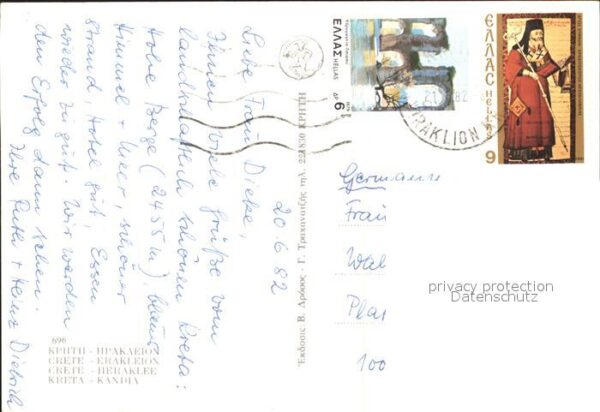 20.6.82
Liebe Frau Dieke,
Ihnen viele Grüße vom
landschaftlich schönen Kreta:
Hohe Berge (2455 m), blauer
Himmel + Meer, schöner
Strand, Hotel gut, Essen
wieder zu gut. Wir werden
den Erfolg dann sehen.
Ihre Ruth + Heinz Dietrich
696
ΚΡΗΤΗ - ΗΡΑΚΛΕΙΟΝ
CRETE - ERAKLEION
CRETE - HERAKLEE
KRETA - KANDIA
Ἐκδοσις Β. Δρόσος - Γ. Τραχανατζής τηλ. 221830 ΚΡΗΤΗ
ΕΛΛΑΣ HELLAS
6
ΕΛΛΑΣ
HELLAS
9
82
IRAKLION
Germany
Frau
Wal
Plau
100
privacy protection
Datenschutz